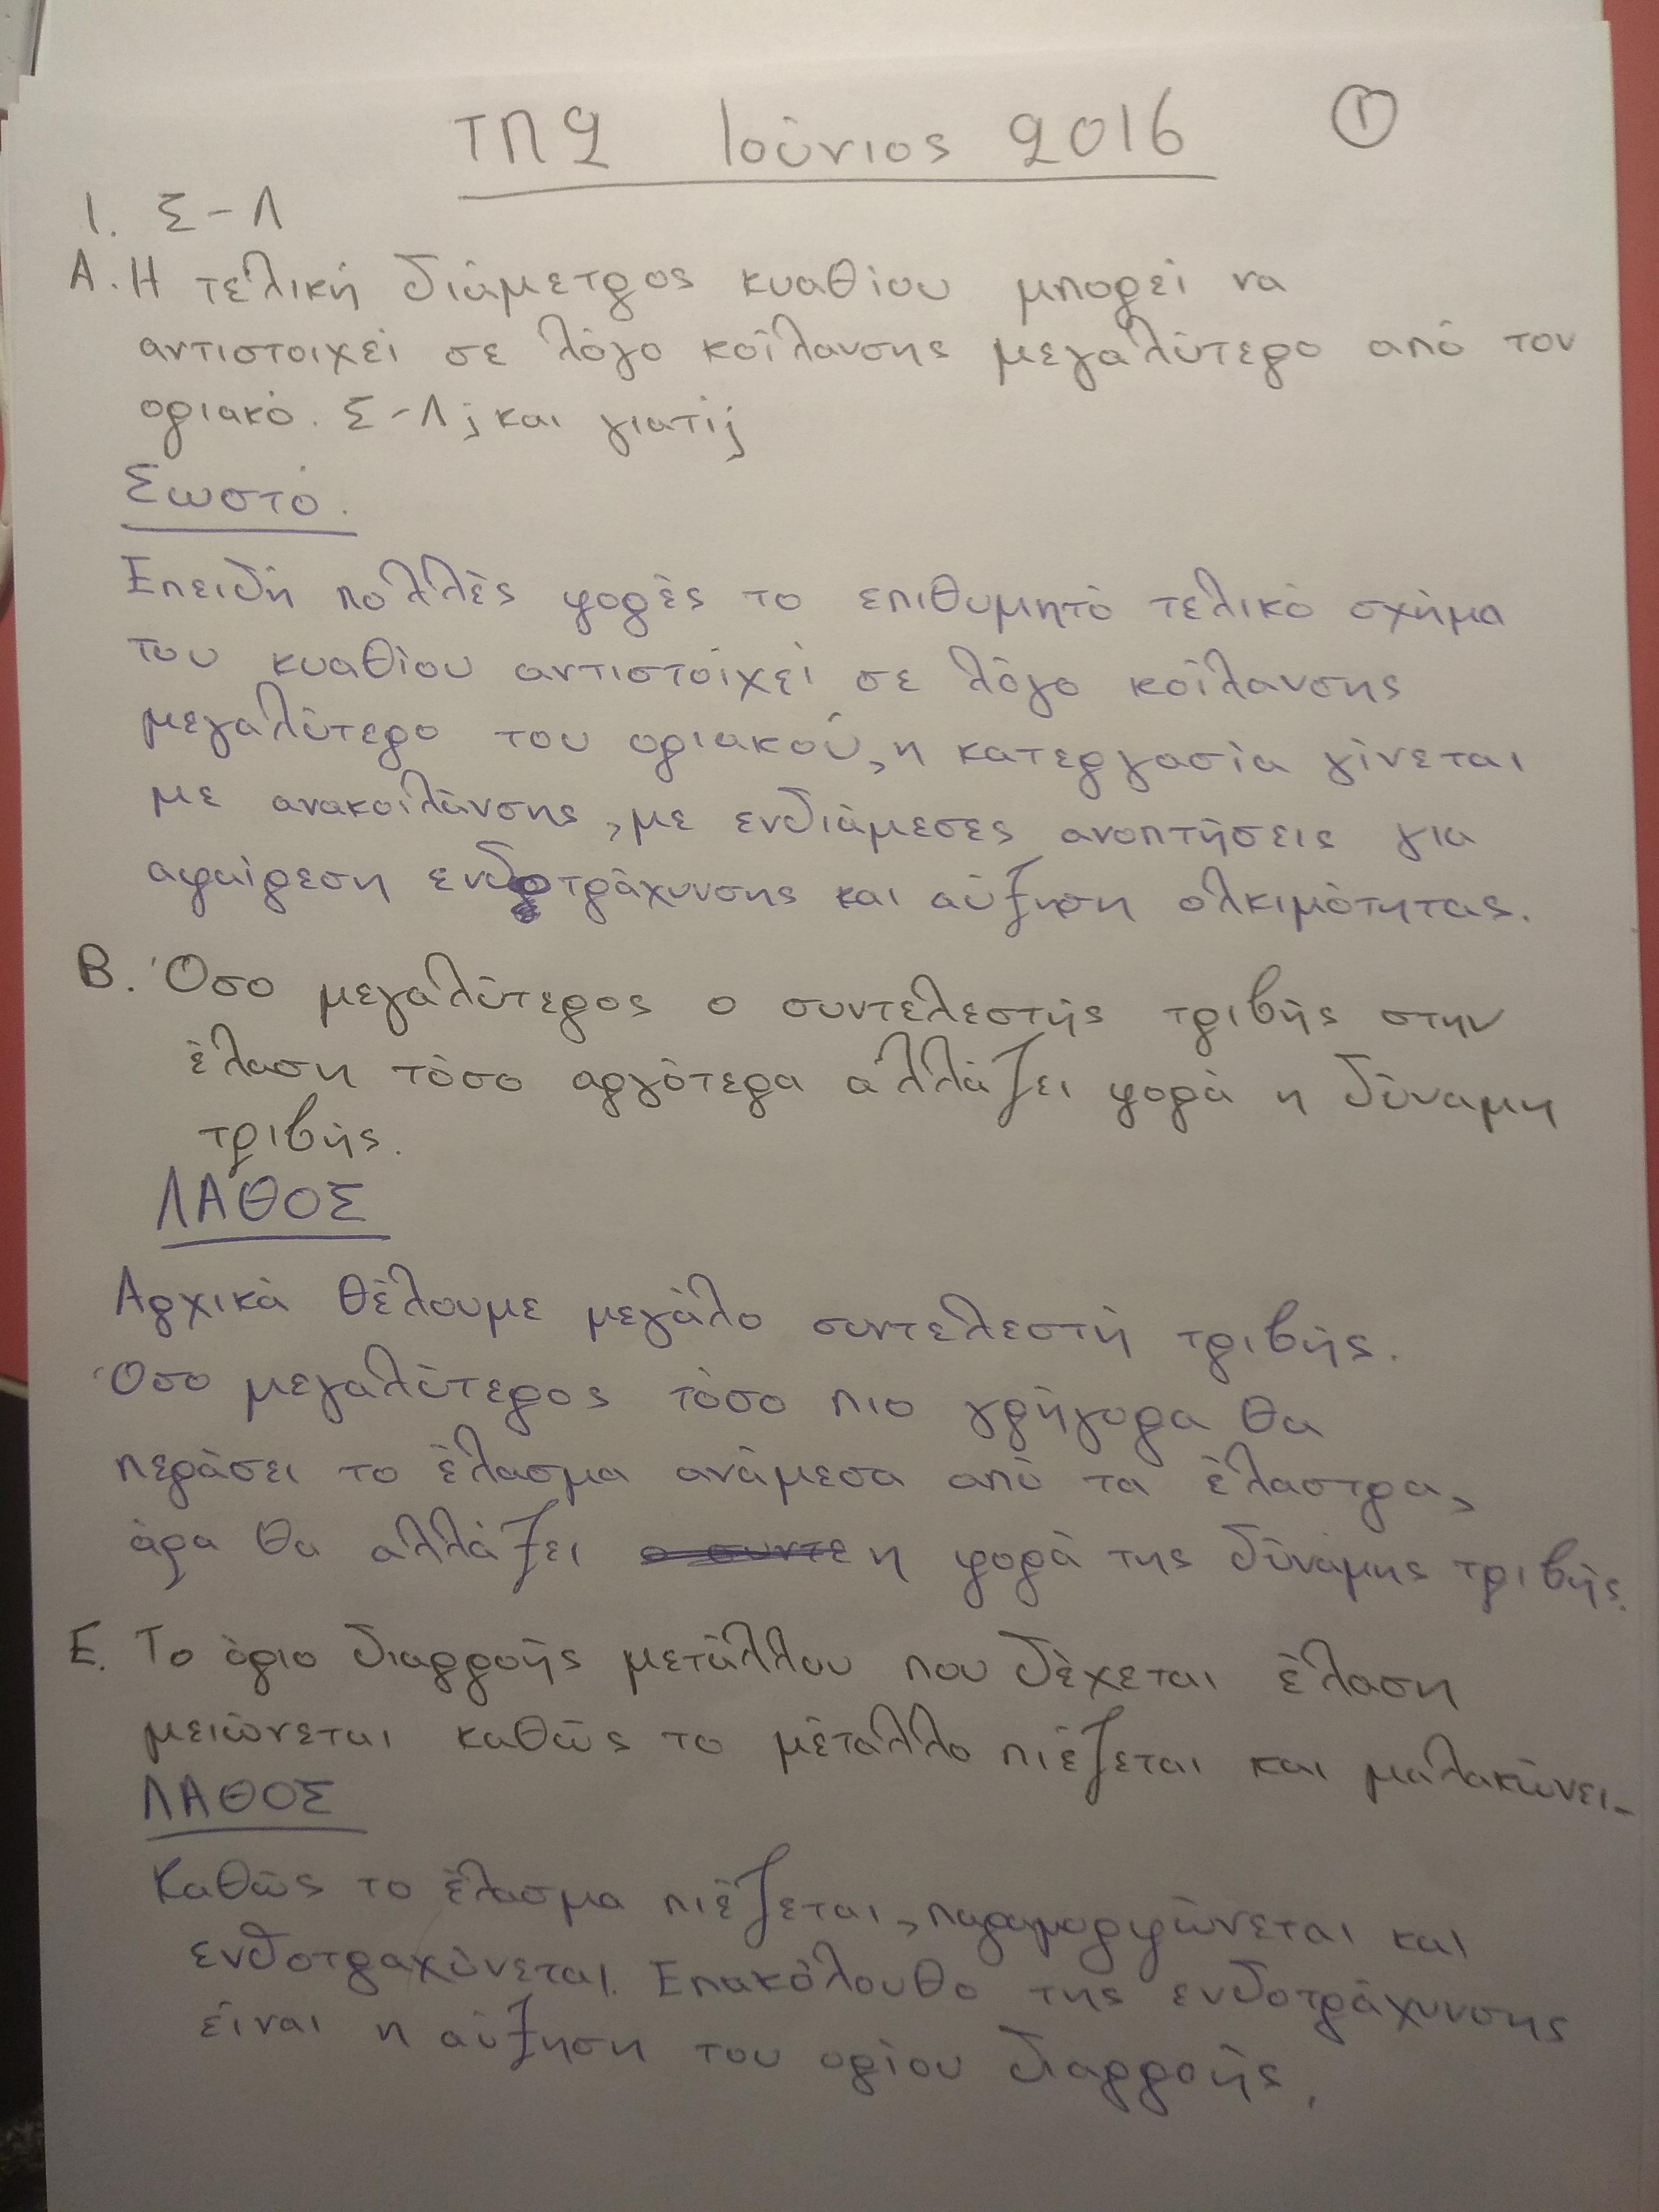 ΤΠ2 Ιούνιος 2016 ①
1. Σ-Λ
Α. Η τελική διάμετρος κυαθίου μπορεί να
αντιστοιχεί σε λόγο κοίλανσης μεγαλύτερο από τον
οριακό. Σ-Λ; και γιατί;
Σωστό.
Επειδή πολλές φορές το επιθυμητό τελικό σχήμα
του κυαθίου αντιστοίχεί σε λόγο κοίλανσης
μεγαλύτερο του οριακού, η κατεργασία γίνεται
με ανακοιλάνσης, με ενδιάμεσες ανοπτήσεις για
αφαίρεση ενδοτράχυνσης και αύξηση ολκιμότητας.
Β. Όσο μεγαλύτερος ο συντελεστής τριβής στην
έλαση τόσο αργότερα αλλάζει φορά η δύναμη
τριβής.
ΛΑΘΟΣ
Αρχικά θέλουμε μεγάλο συντελεστή τριβής.
Όσο μεγαλύτερος τόσο πιο γρήγορα θα
περάσει το έλασμα ανάμεσα από τα έλαστρα,
άρα θα αλλάξει η φορά της δύναμης τριβής.
Ε. Το όριο διαρροής μετάλλου που δέχεται έλαση
μειώνεται καθώς το μέταλλο πιέζεται και μαλακώνει.
ΛΑΘΟΣ
Καθώς το έλασμα πιέζεται, παραμορφώνεται και
ενδοτραχύνεται. Επακόλουθο της ενδοτράχυνσης
είναι η αύξηση του ορίου διαρροής.